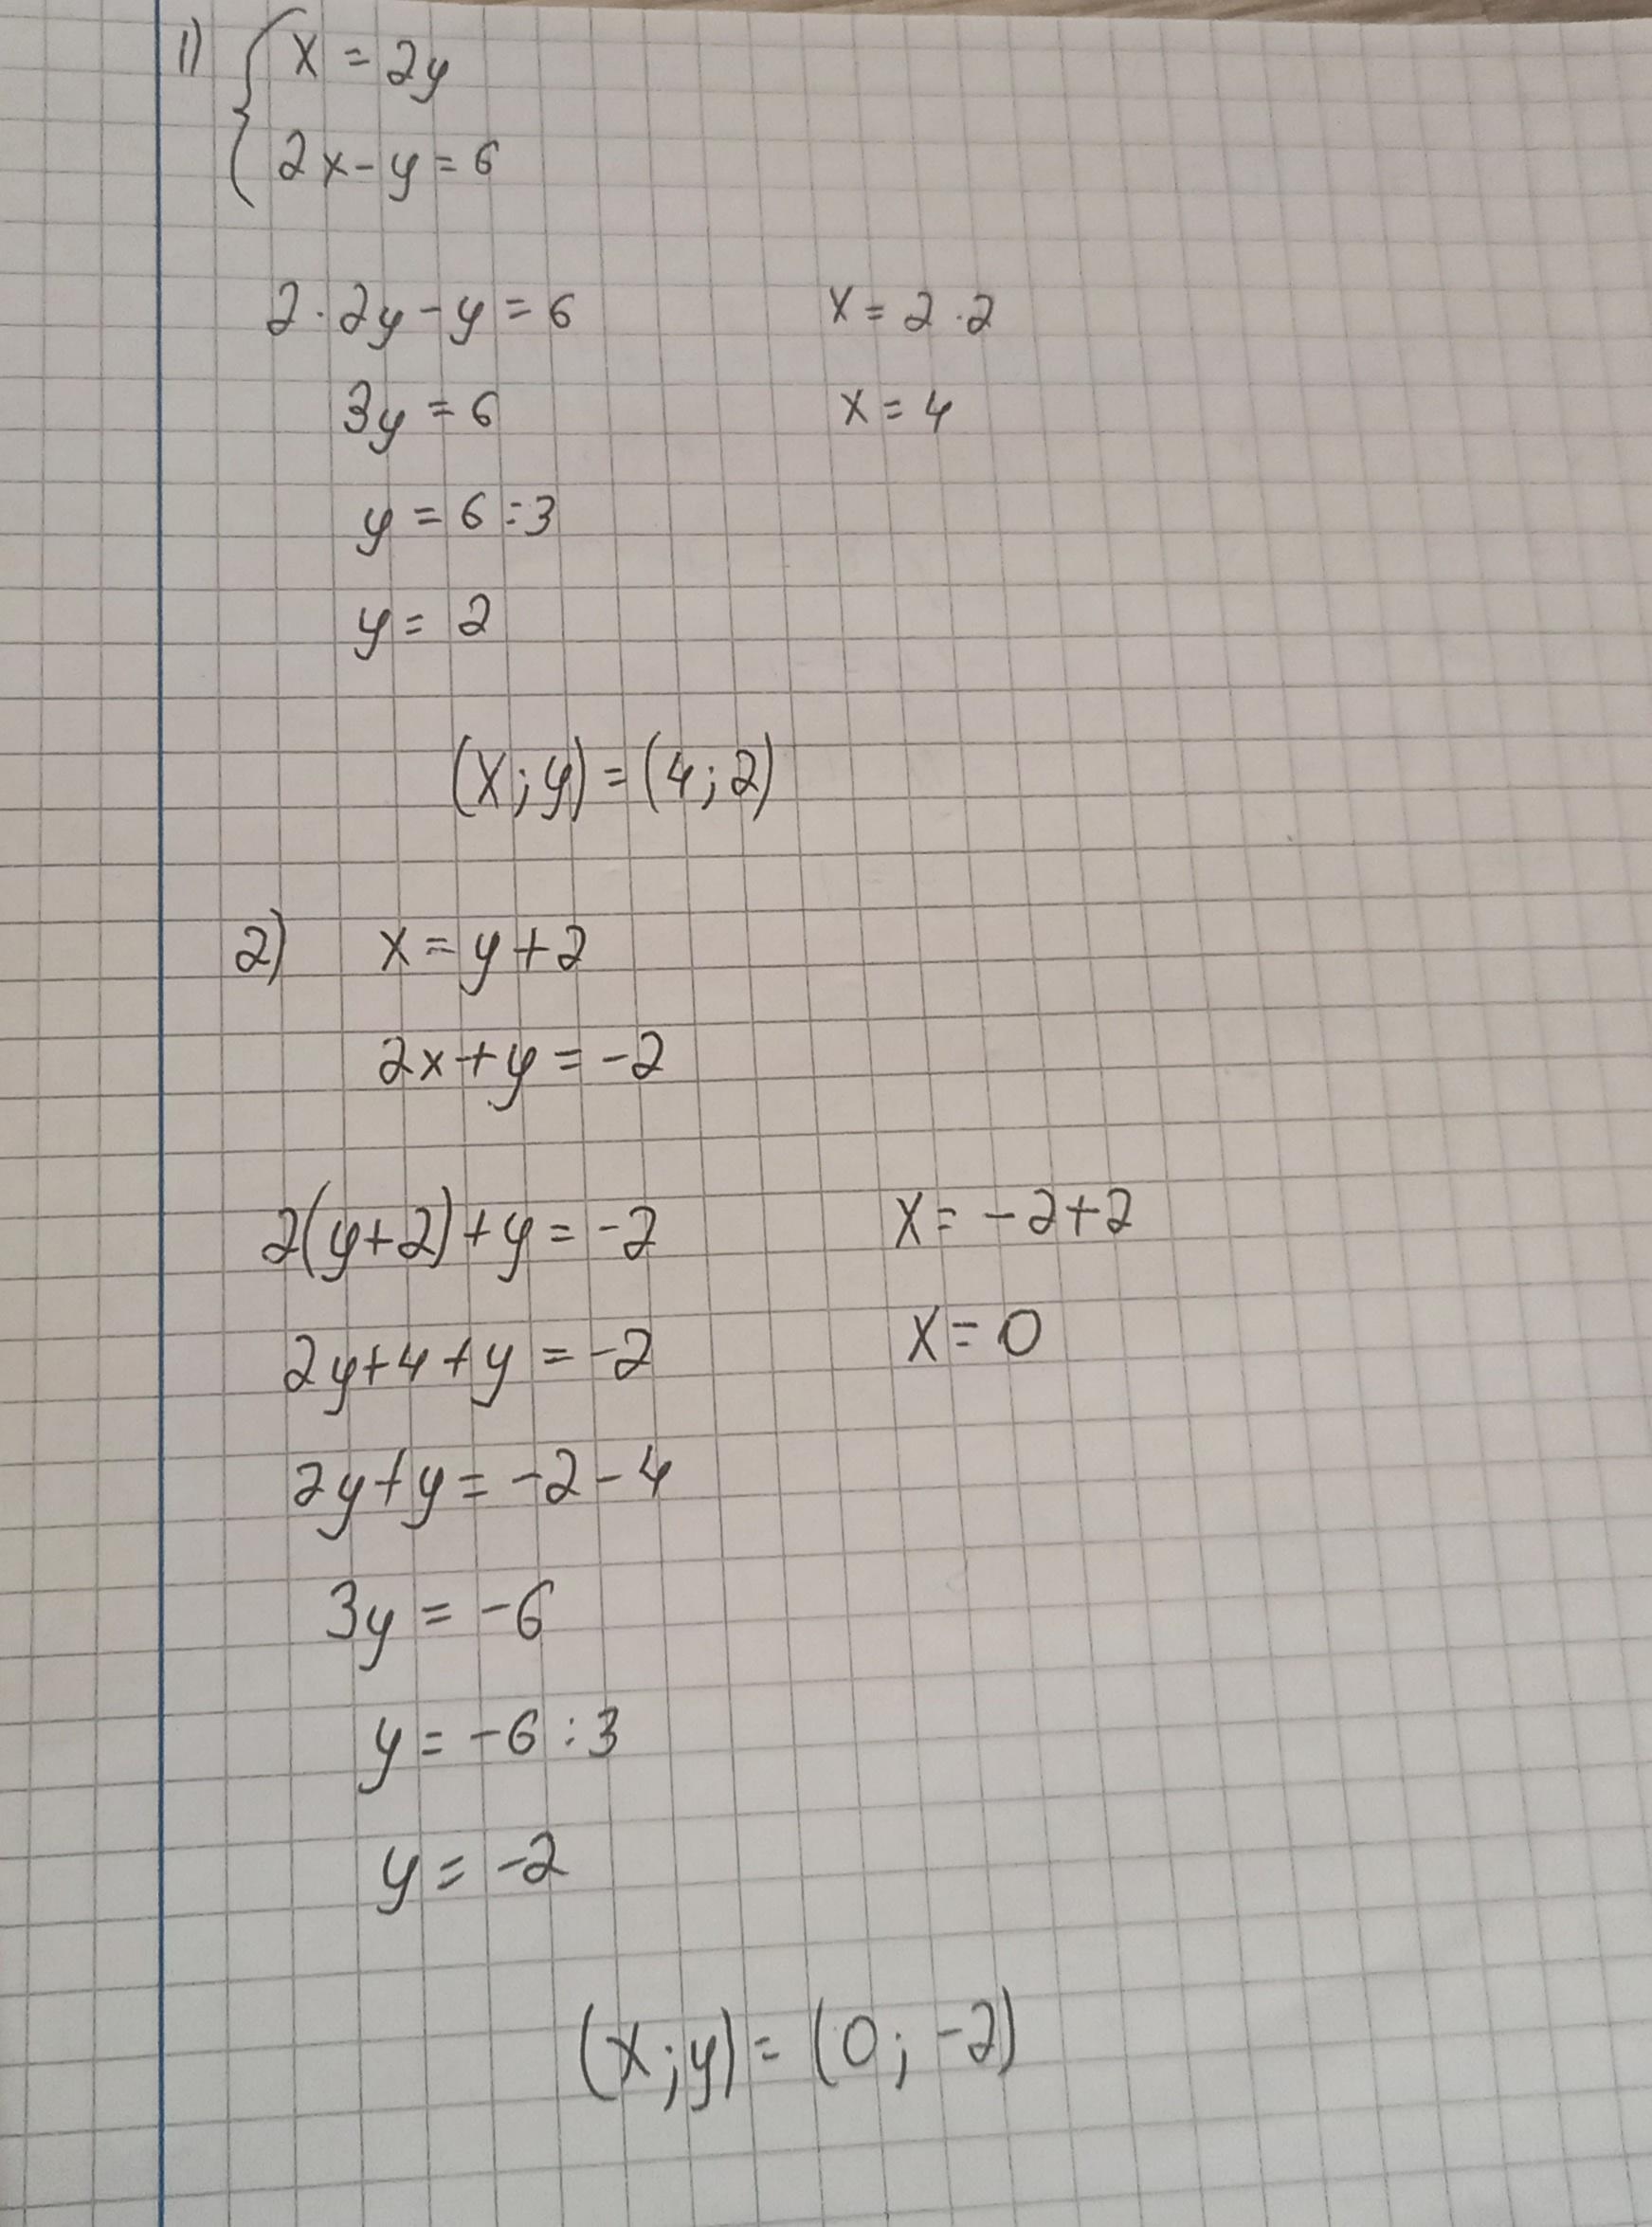 1) { x = 2y
2x - y = 6
2 · 2y - y = 6
3y = 6
y = 6 : 3
y = 2
x = 2 · 2
x = 4
(x; y) = (4; 2)
2) x = y + 2
2x + y = -2
2(y+2) + y = -2
2y + 4 + y = -2
2y + y = -2 - 4
3y = -6
y = -6 : 3
y = -2
x = -2 + 2
x = 0
(x; y) = (0; -2)